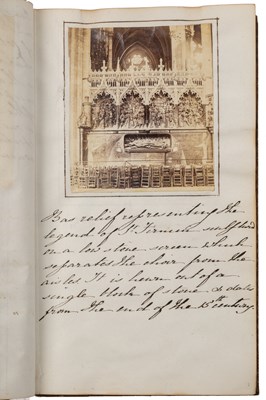 Bas relief representing the
legend of St. Firmin
on a low stone screen which
separates the choir from the
aisles. It is hewn out of a
single block of stone & dates
from the end of the 15th century.